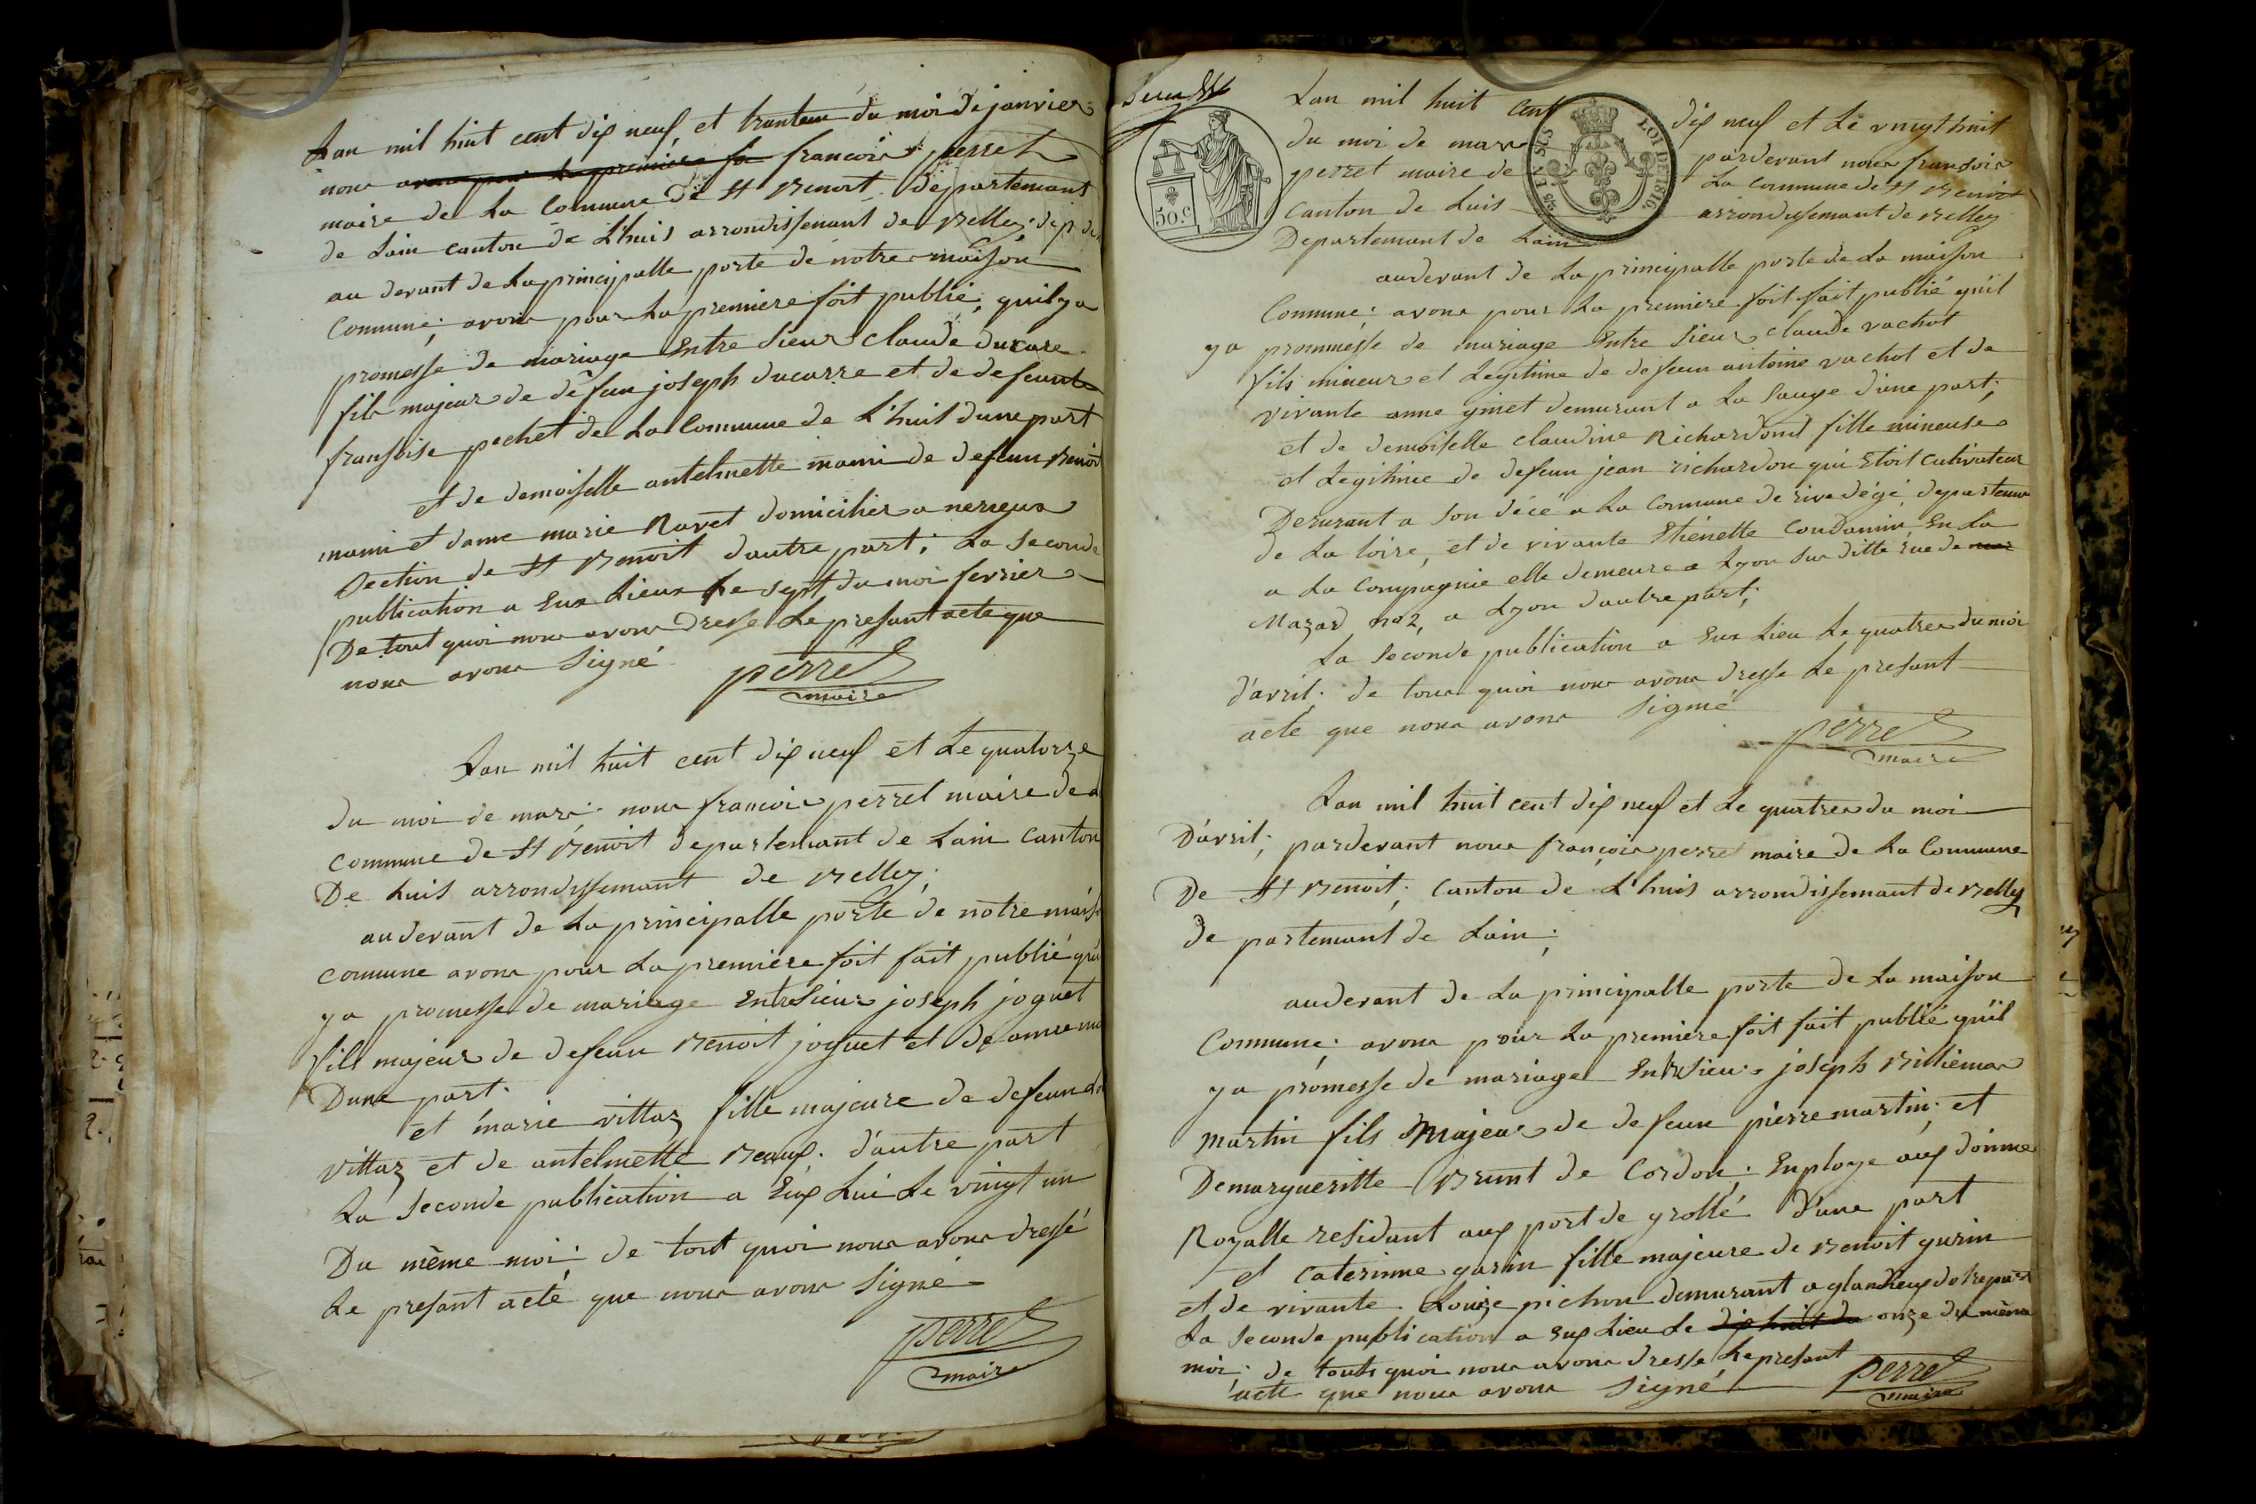 Lan mil huit cent dix neuf et tranteun du moi de janvier
nous avons pour la premiere fo francois perret
maire de La Commune de St Benoit, departemant
de Lain canton de L'huis arrondissemant de Belley
au devant de La principalle porte de notre maison
Commune; avons pour La premiere foit publié, quil y a
promesse de mariage Entre Sieur Claude ducare
fils majeur de defeun joseph ducarre et de defeunte
fransoise pochet de La Commune de L'huis dune part
et de demoiselle antelmette mami de defeun Benoit
mami et dame marie Ravet domicilies a nerieux
Section de St Benoit dautre part; La Seconde
publication a Eux Lieux Le sept du moi fevrier
De tout quoi nous avons dressé Le presant acte que
nous avons Signé
perret
maire
Lan mil huit cent dix neuf et Le quatorze
du moi de mars nous francois perret maire de
commune de St Benoit departemant de Lain Canton
De Luis arrondissemant de Belley;
au devant de La principalle porte de notre
commune avons pour La premiere foit fait publié
y a promesse de mariage Entre Sieur joseph joguet
fils majeur de defeun Benoit joguet et de anne
Dune part.
et marie vittoz fille majeure de defeun
vittoz et de antelmette Beauf. d'autre part
La Seconde publication a Eux Lui Le vingt un
Du même moi; de tout quoi nous avons dressé
Le presant acte que nous avons Signé
perret
maire
Lan mil huit cent dix neuf et Le vingt huit
du moi de mars pardevant nous fransois
perret maire de La Commune de St Benoit
Canton de Luis arrondissemant de Belley
Departemant de Lain
50.c
LOI DE 1816.
audevant de La principalle porte de La maison
Commune; avons pour La premiere foit fait publié quil
y a prommesse de mariage Entre Sieur claude vachot
fils mineur et Legitime de defeun antoine vachot et de
vivante anne ginet demurant a La Sauge d'une part;
et de demoiselle claudine Richardond fille mineuse
et Legitime de defeun jean richardon qui Etoit Cultivateur
Demurant a Son décé a La Commune de rive dégé departemen
de La loire, et de vivante Etiénette Condamin En La
a La Compagnie elle demeure a Lyon Sur ditte rue de mar
Mazard no 2, a Lyon d'autre part;
La Seconde publication a Eux Lieu Le quatres du moi
d'avril; de tous quoi nous avons dressé Le presant
acte que nous avons Signé
perret
maire
Lan mil huit cent dix neuf et Le quatres du moi
D'avril; pardevant nous françois perret maire de La Commune
De St Benoit; Canton de L'huis arrondissemant de Belley
de partemant de Lain;
audevant de La principalle porte de La maison
Commune; avons pour La premiere foit fait publié qu'il
y a promesse de mariage Entre Sieur joseph Billiemas
martin fils Majeur de defeun pierre martin; et
De margueritte Brunt de Cordon; Employe aux doinne
Royalle residant aux port de grollé d'une part
et caterinne garin fille majeure de Benoit gurin
et de vivante. Louise pichon demurant a glandieux dotre part
La Seconde publication a Eux Lieu Le dix huit du onze du même
moi; de touts quoi nous avons dressé Le presant
acte que nous avons Signé
perret
maire